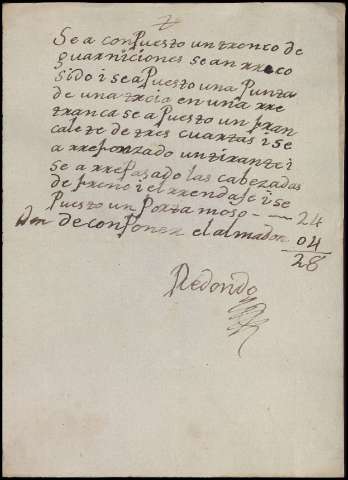 Se a conpuesto un tronco de
guarniciones se an rreco
sido i se a puesto una punta
de una en una rre
tranca se a puesto un fran
calete de tres cuartas i se
a rreforzado un tirante i
se a rrepasado las cabezadas
de freno i el rrendaje i se
puesto un portamoso - 24
de conponer el almadon 04
28
Redondo